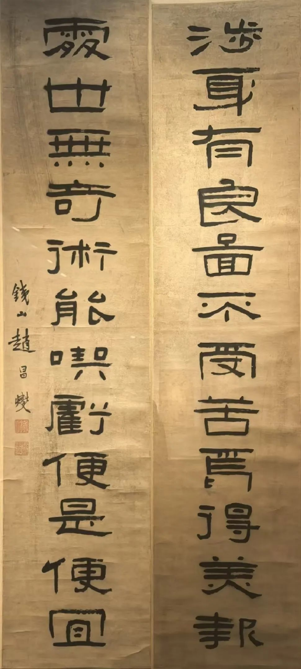 涉身有良啚不受苦焉得美報
處世無奇術能喫虧便是便宜
錢山趙昌燮